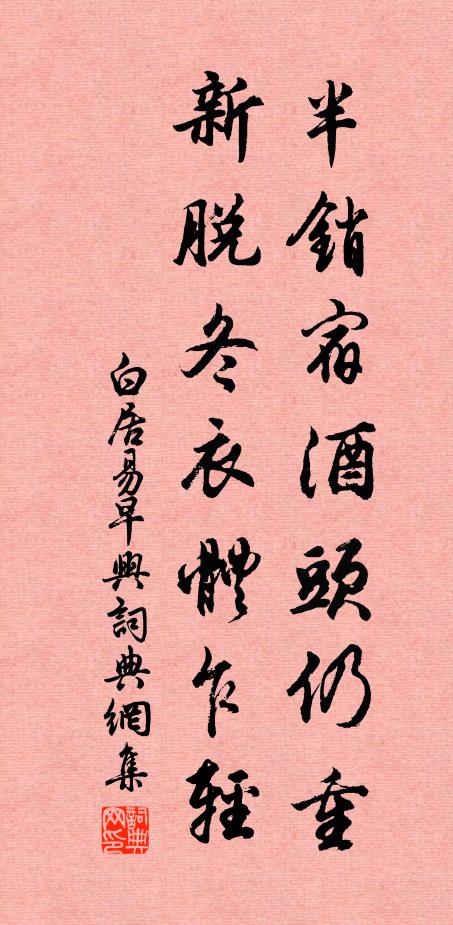 半銷宿酒頭仍重
新脫冬衣體乍輕
白居易早興詞典網集
詞典网印